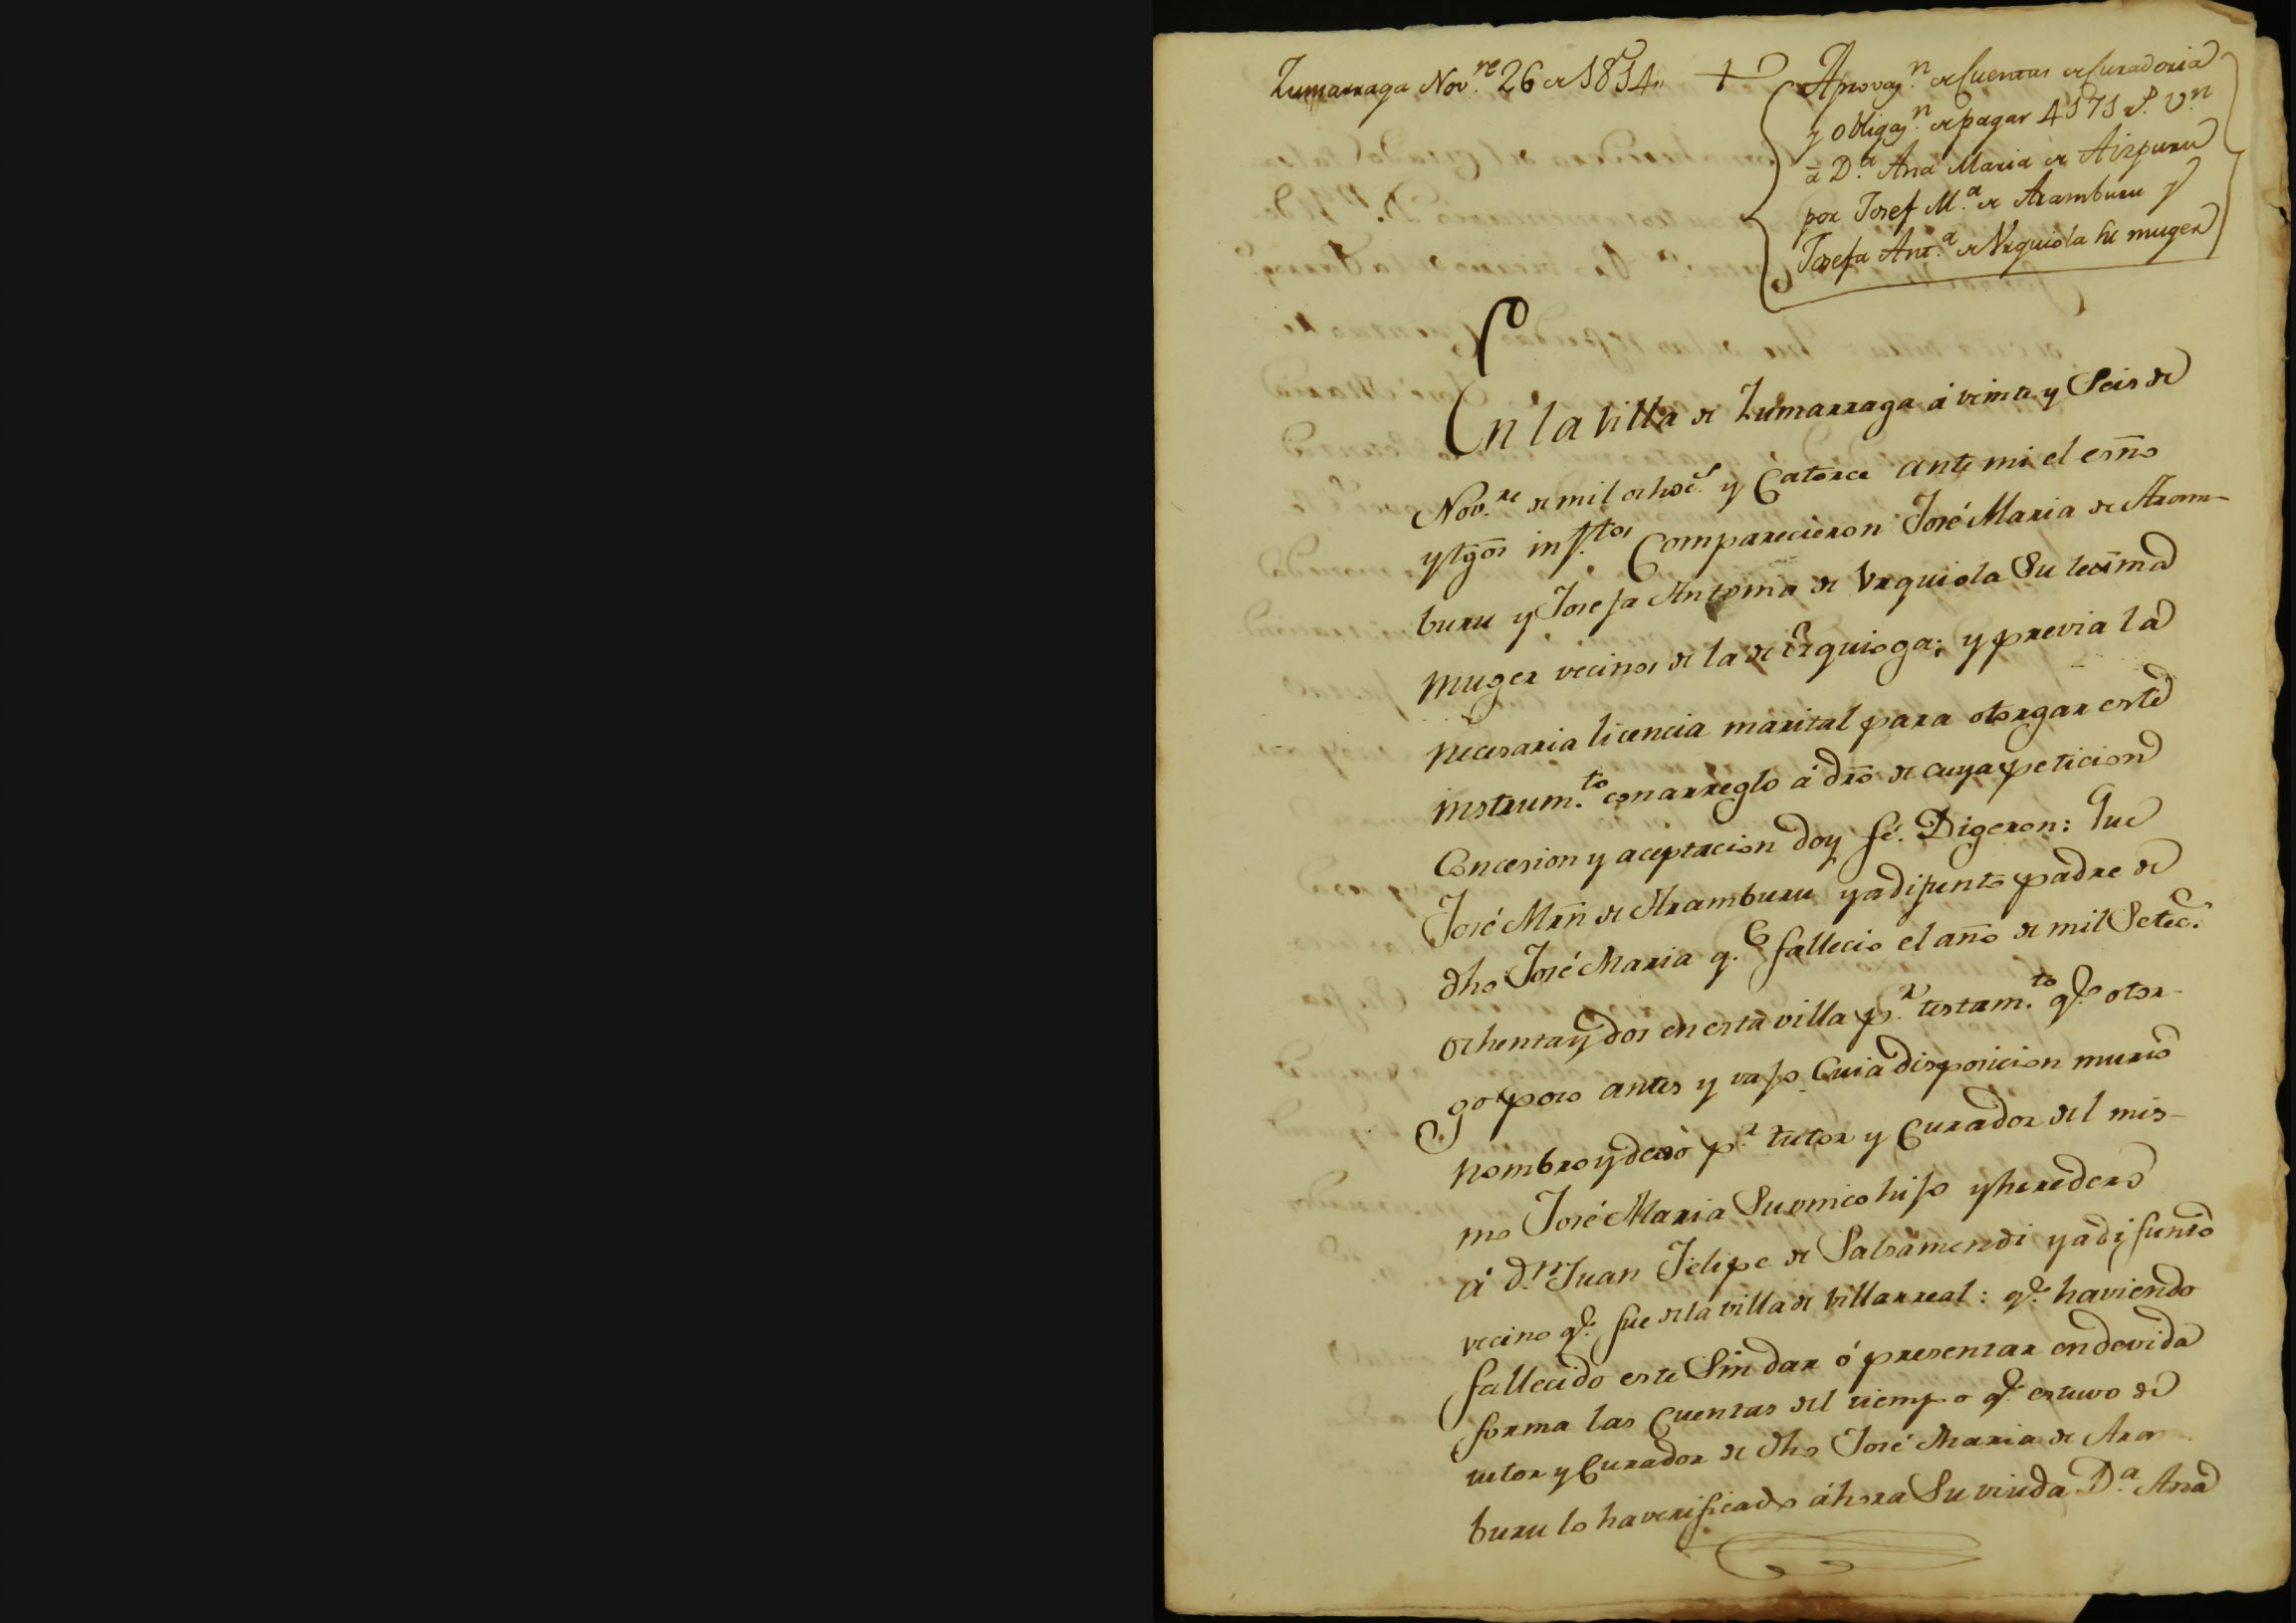 Zumarraga Nov.re 26 de 1814 +
Aprovaz.n de Cuentas de Curadoria
y obligaz.n de pagar 4571 r.s V.n
à D.a Ana Maria de Aizpuru
por Josef M.a de Aramburu y
Josefa Ant.a de Urquiola su muger
En la villa de Zumarraga á veinte y Seis de
Nov.re de mil ochoc.s y Catorce ante mi el esño
y tgõs inf.tos Comparecieron José Maria de Aram-
buru y Josefa Antonia de Urquiola Su lexma
muger vecinos de la de Ezquioga; y previa la
necesaria licencia marital para otorgar este
instrum.to con arreglo á dro de cuya peticion
Concesion y aceptacion doy fé. Digeron: Que
José Mrn de Aramburu ya difunto padre de
dho José Maria q.e fallecio el año de mil Setec.s
ochenta y dos en esta villa p.r testam.to q.e otor-
go poco antes y vajo Cuia disposicion murio
nombro y dexó p.r tutor y Curador del mis-
mo José Maria Su unico hijo y heredero
á d.n Juan Felipe de Salsamendi ya difunto
vecino q.e fue de la villa de Villarreal: q.e haviendo
fallecido este Sin dar ó presentar en devida
forma las Cuentas del tiempo q.e estuvo de
tutor y Curador de dho José Maria de Aram
buru lo ha verificado ahora Su viuda D.a Ana